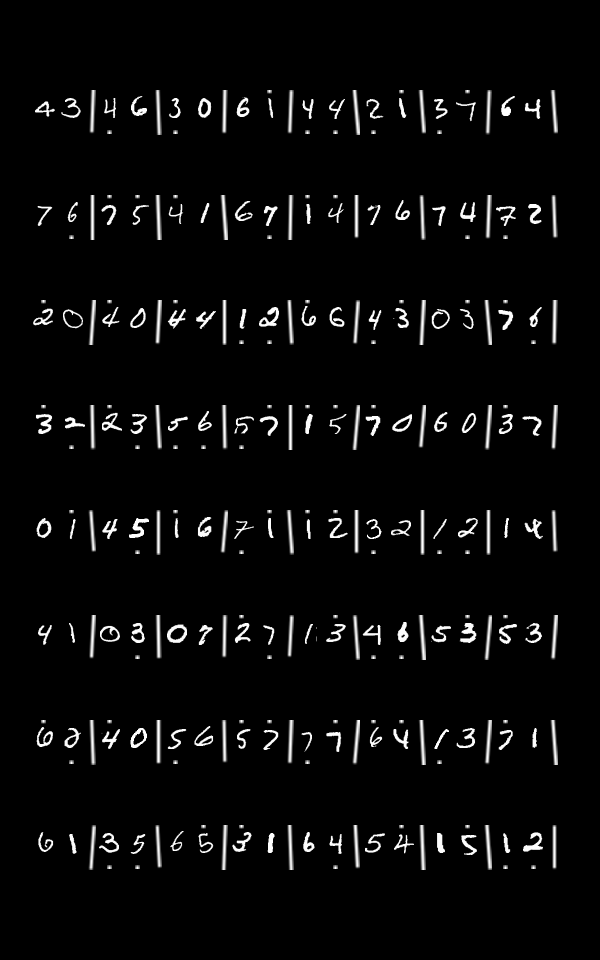 4 3 | 4̣ 6 | 3̣ 0 | 6 1̇ | 4̣ 4̣ | 2̣ 1̇ | 3̣ 7̇ | 6 4 |
7 6̣ | 7̇ 5̇ | 4̇ 1 | 6 7̣ | 1̇ 4̇ | 7 6 | 7 4̣ | 7̣ 2 |
2̇ 0 | 4̇ 0 | 4̇ 4 | 1̣ 2̣ | 6̇ 6 | 4̣ 3̇ | 0 3̇ | 7̇ 6̣ |
3̇ 2̣ | 2̇ 3̣ | 5̣ 6̣ | 5̣ 7̇ | 1 5̇ | 7̇ 0 | 6 0 | 3̇ 7 |
0 1̇ | 4 5̣ | 1̇ 6 | 7̣ 1̇ | 1̇ 2̇ | 3̣ 2 | 1̣ 2̣ | 1̇ 4 |
4 1 | 0 3̣ | 0 7 | 2̇ 7̣ | 1 3̇ | 4̣ 6̣ | 5 3̣ | 5̇ 3 |
6̇ 2̣ | 4 0 | 5̣ 6 | 5 7 | 7̣ 7̇ | 6̇ 4̇ | 1̣ 3 | 7̇ 1 |
6 1 | 3̣ 5̣ | 6 5̇ | 3̇ 1 | 6 4̣ | 5 4̇ | 1 5̣ | 1̣ 2̣ |